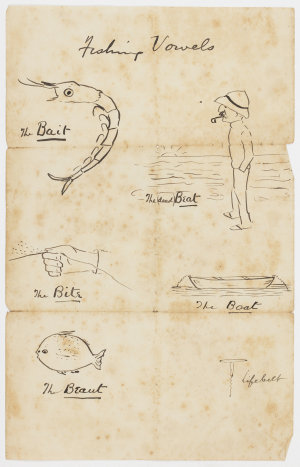 Fishing Vowels
The Bait
The dead Beat
The Bite
The Boat
The Beaut
Lifebelt